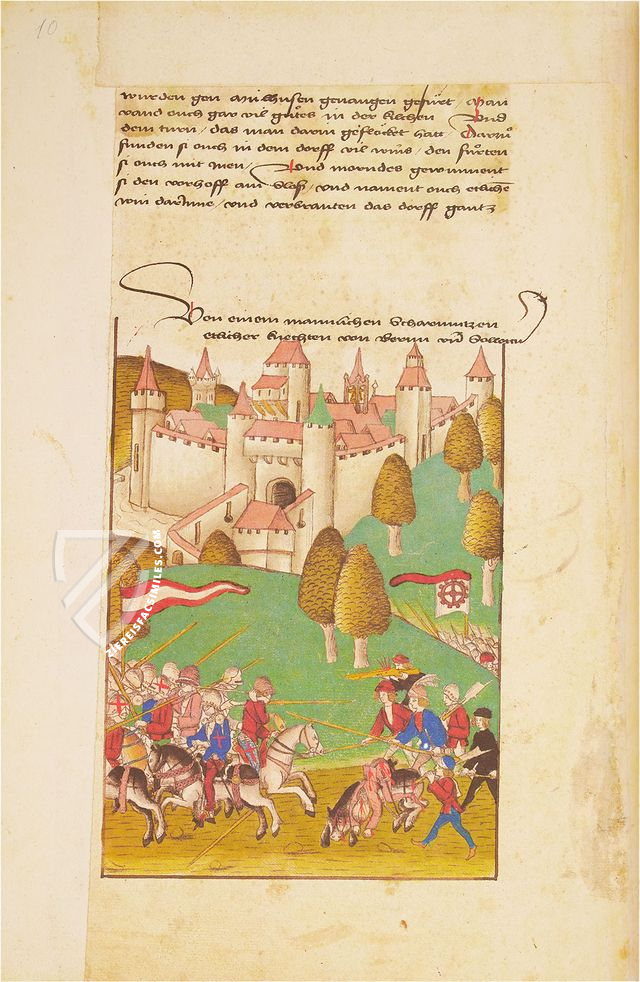 10
wurden gen Milhusen geuangen gefürt / Man
vand ouch gar vil gůtes in der kilchen Vnd
dem turn / das man darin geflöcket hatt / Darzů
funden si ouch in dem dorff vil wins / den fůrten
si ouch mit inen / Vnd morndes gewunnent
si den vorhoff am Sloß / vnd nament ouch etliche
win darinne / vnd verbranten das dorff gantz
Von einem manlichen Scharmutzen
etlicher knechten von Bernn vnd
ZIEREISFACSIMILES.COM